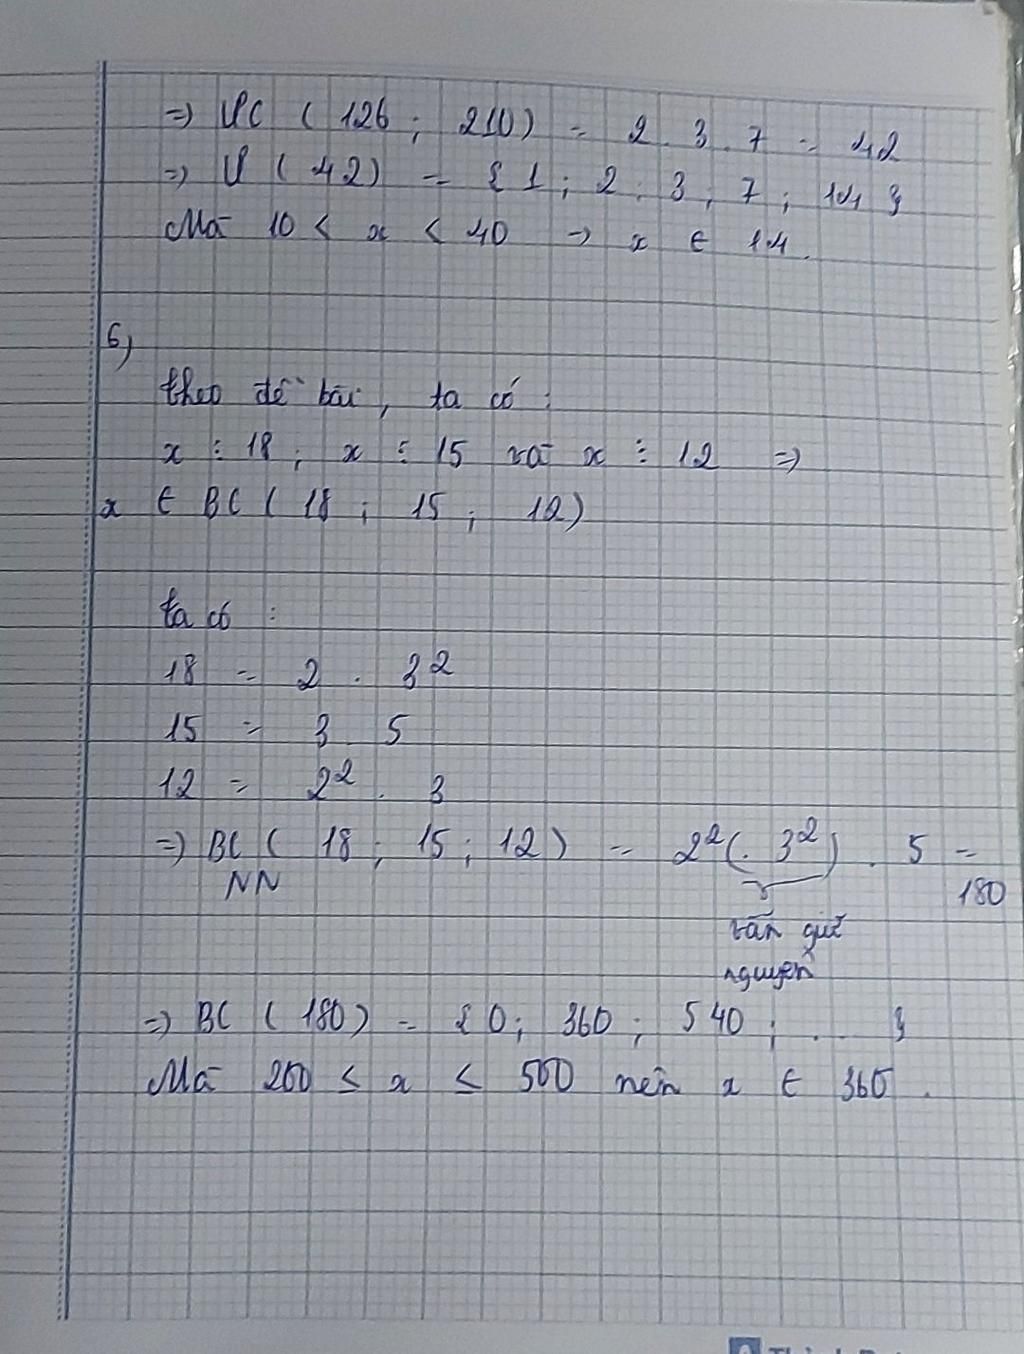 => ƯC ( 126 ; 210) = 2 . 3 . 7 = 42
=> Ư ( 42) = { 1 ; 2 ; 3 ; 7 ; 14 }
Mà 10 < x < 40 => x ∈ 14.
6)
theo đề bài, ta có :
x ⋮ 18 ; x ⋮ 15 và x ⋮ 12 =>
x ∈ BC ( 18 ; 15 ; 12)
ta có :
18 = 2 . 3²
15 = 3 . 5
12 = 2² . 3
=> BC ( 18 ; 15 ; 12 ) = 2² (. 3²) . 5 =
NN 180
vẫn giữ
nguyên
=> BC ( 180) = { 0 ; 360 ; 540 ; ... }
Mà 200 ≤ x ≤ 500 nên x ∈ 360 .